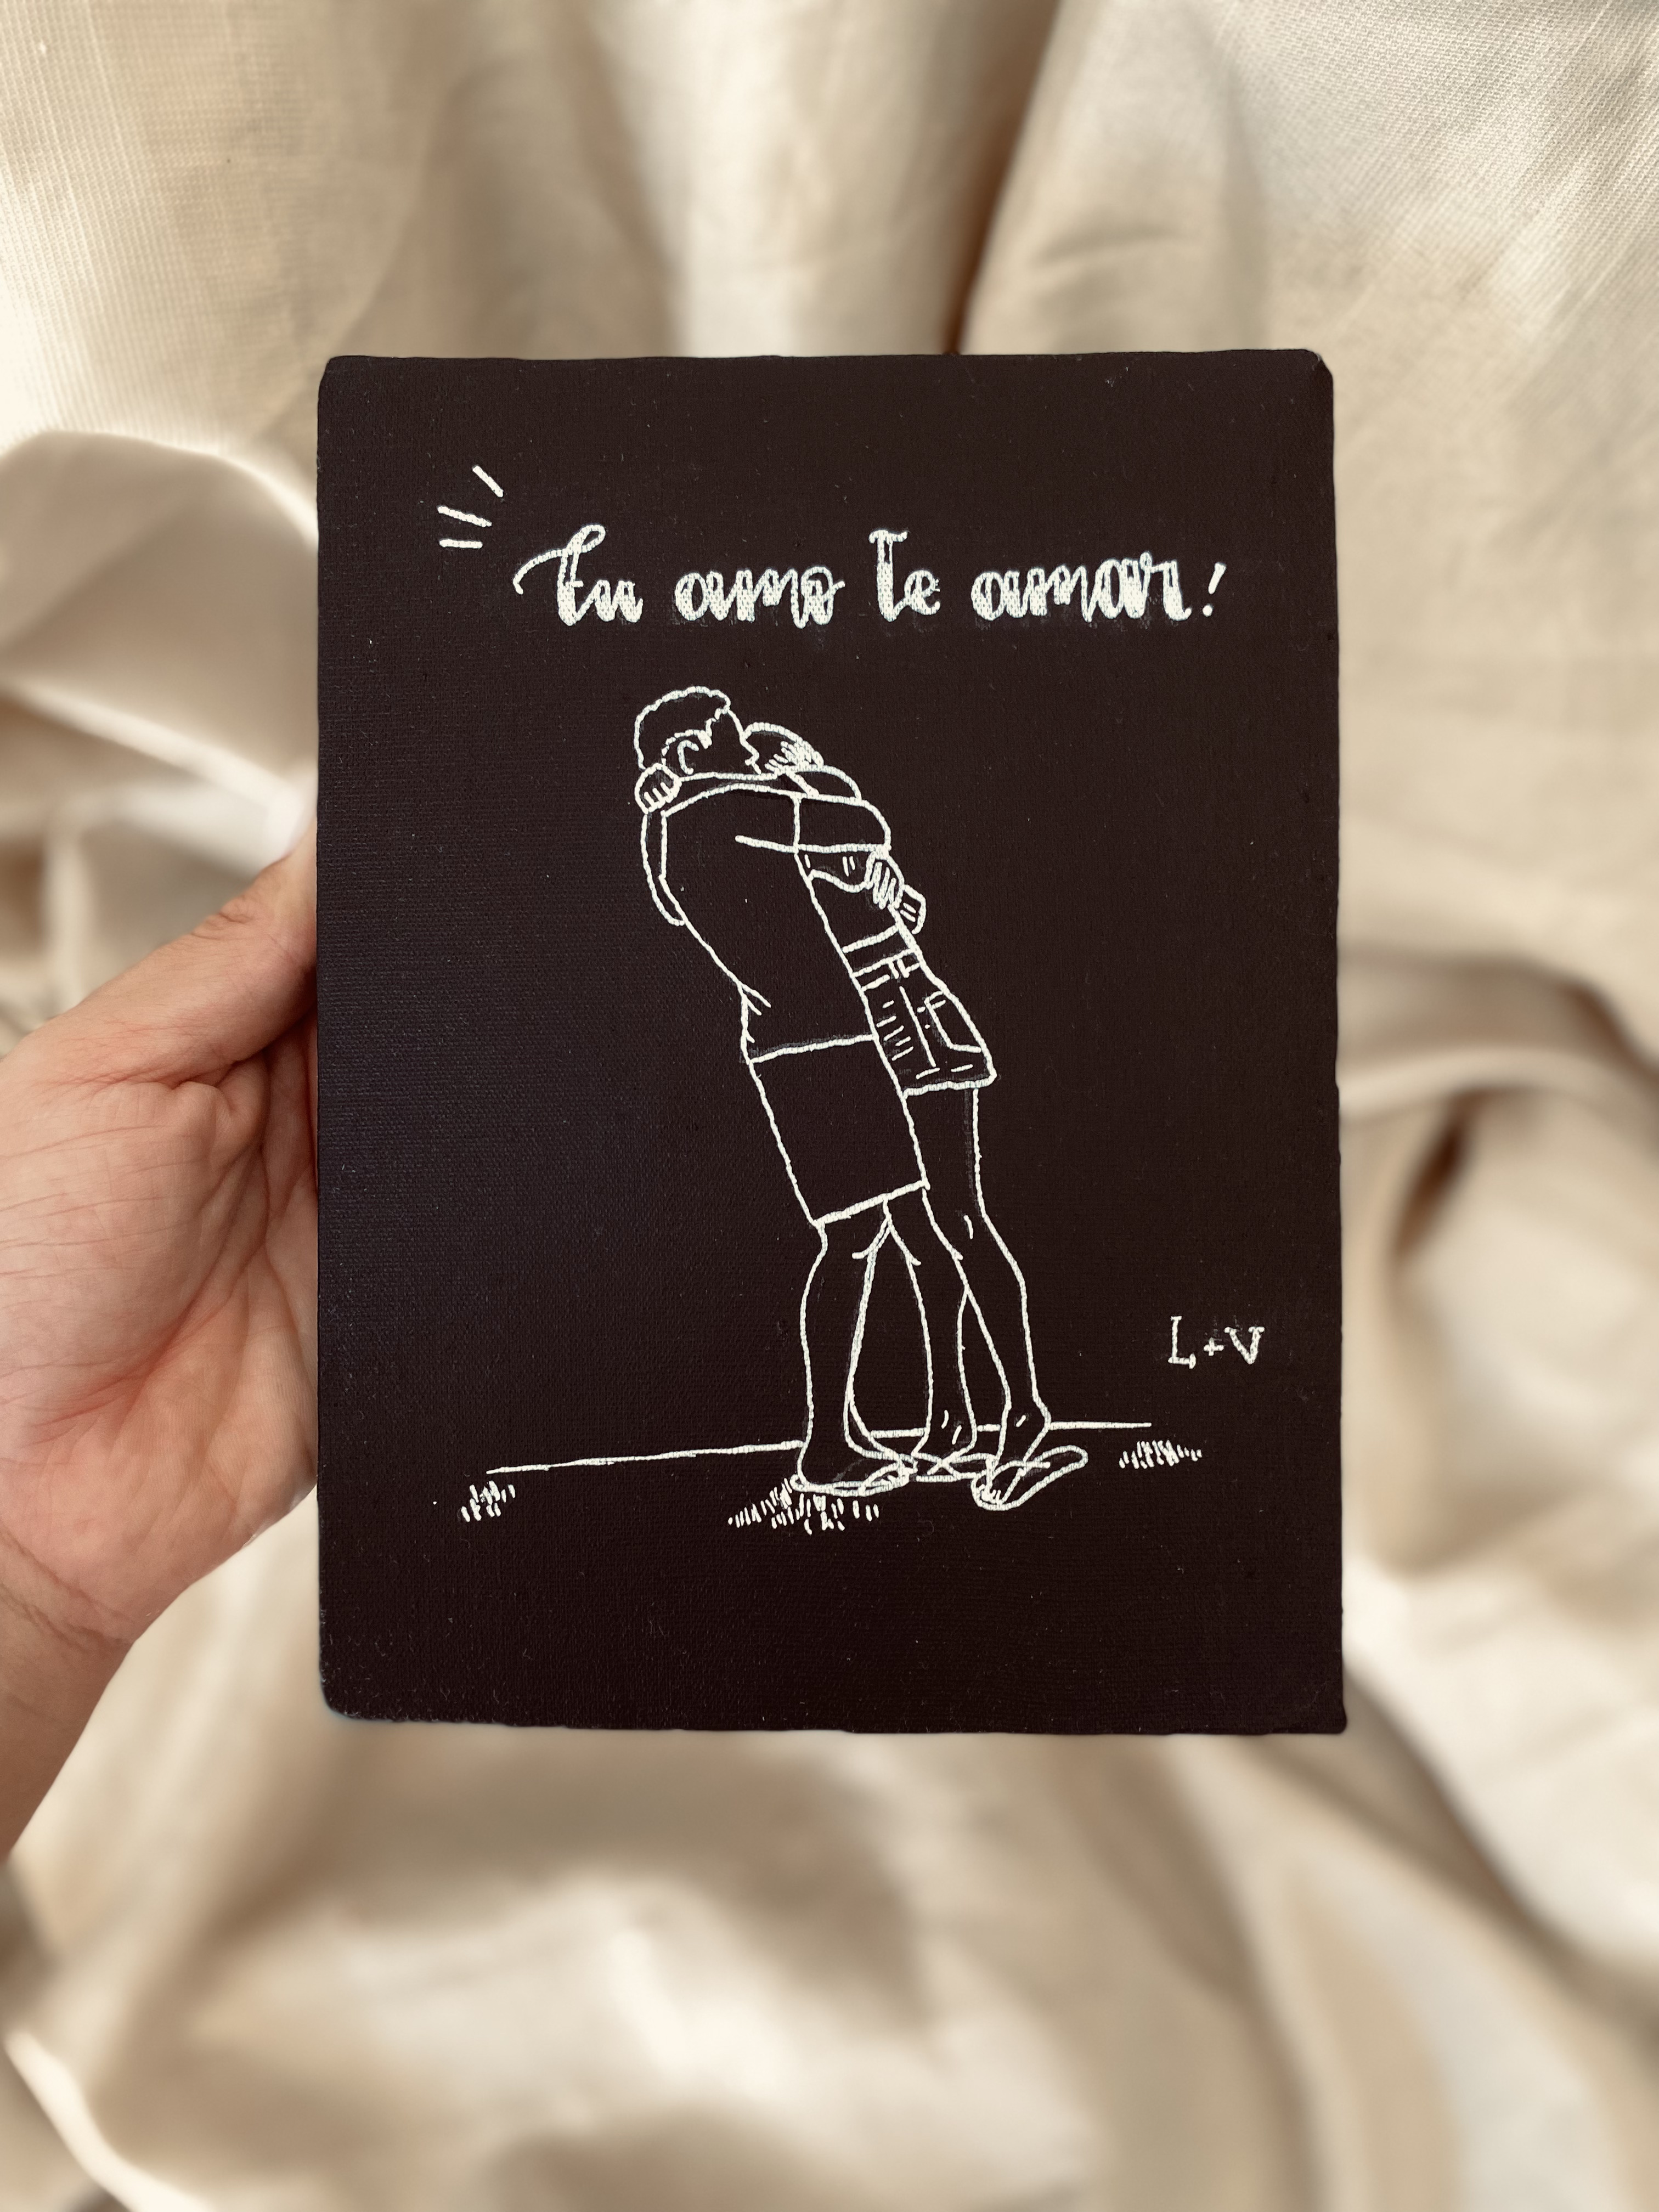 Eu amo te amar!
L+V